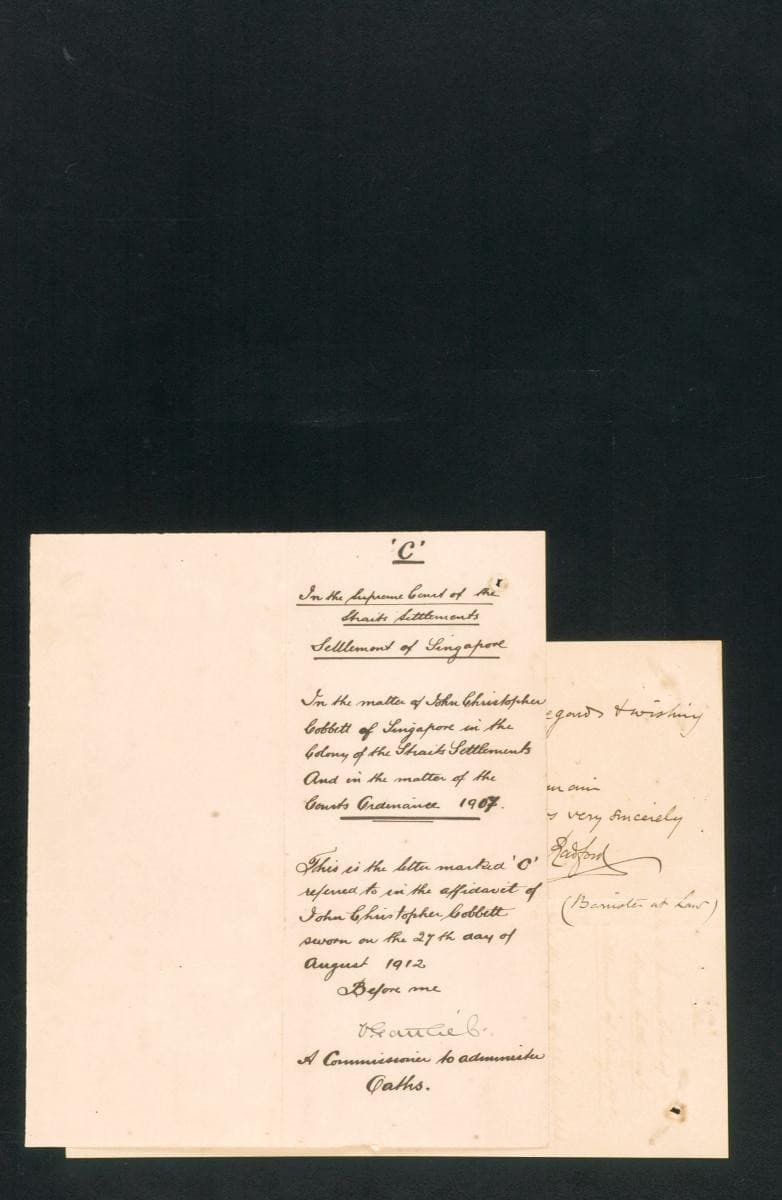 'C'
In the Supreme Court of the
Straits Settlements
Settlement of Singapore
In the matter of John Christopher
Cobbett of Singapore in the
Colony of the Straits Settlements
And in the matter of the
Courts Ordinance 1907.
This is the letter marked 'C'
referred to in the affidavit of
John Christopher Cobbett
sworn on the 27th day of
August 1912
Before me
A Commissioner to administer
Oaths.
egards & wishing
main
s very sincerely
Radford
(Barrister at Law)